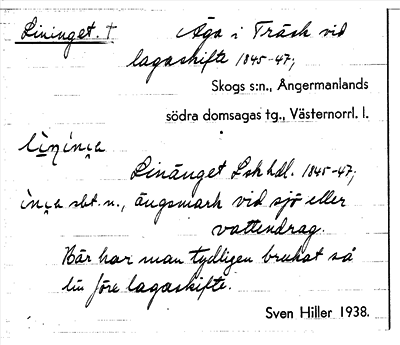 Lininget. † Äga i Träsk vid
lagaskifte 1845-47;
Skogs s:n., Ångermanlands
södra domsagas tg., Västernorrl. l.
Linänget Lskhdl. 1845-47;
sbt. n., ängsmark vid sjö eller
vattendrag.
Här har man tydligen brukat så
lin före lagaskifte.
Sven Hiller 1938.